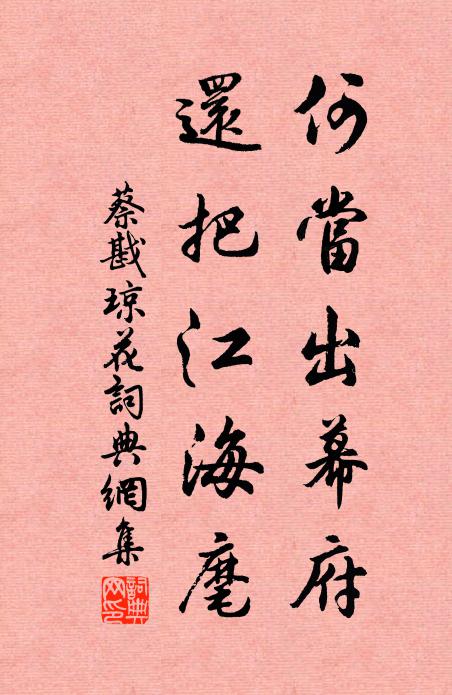 何當出幕府
還把江海麾
蔡戡琼花詞典網集
詞典網印